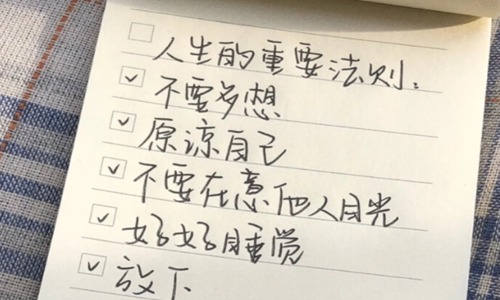 人生的重要法则：
不要多想
原谅自己
不要在意他人目光
好好睡觉
放下